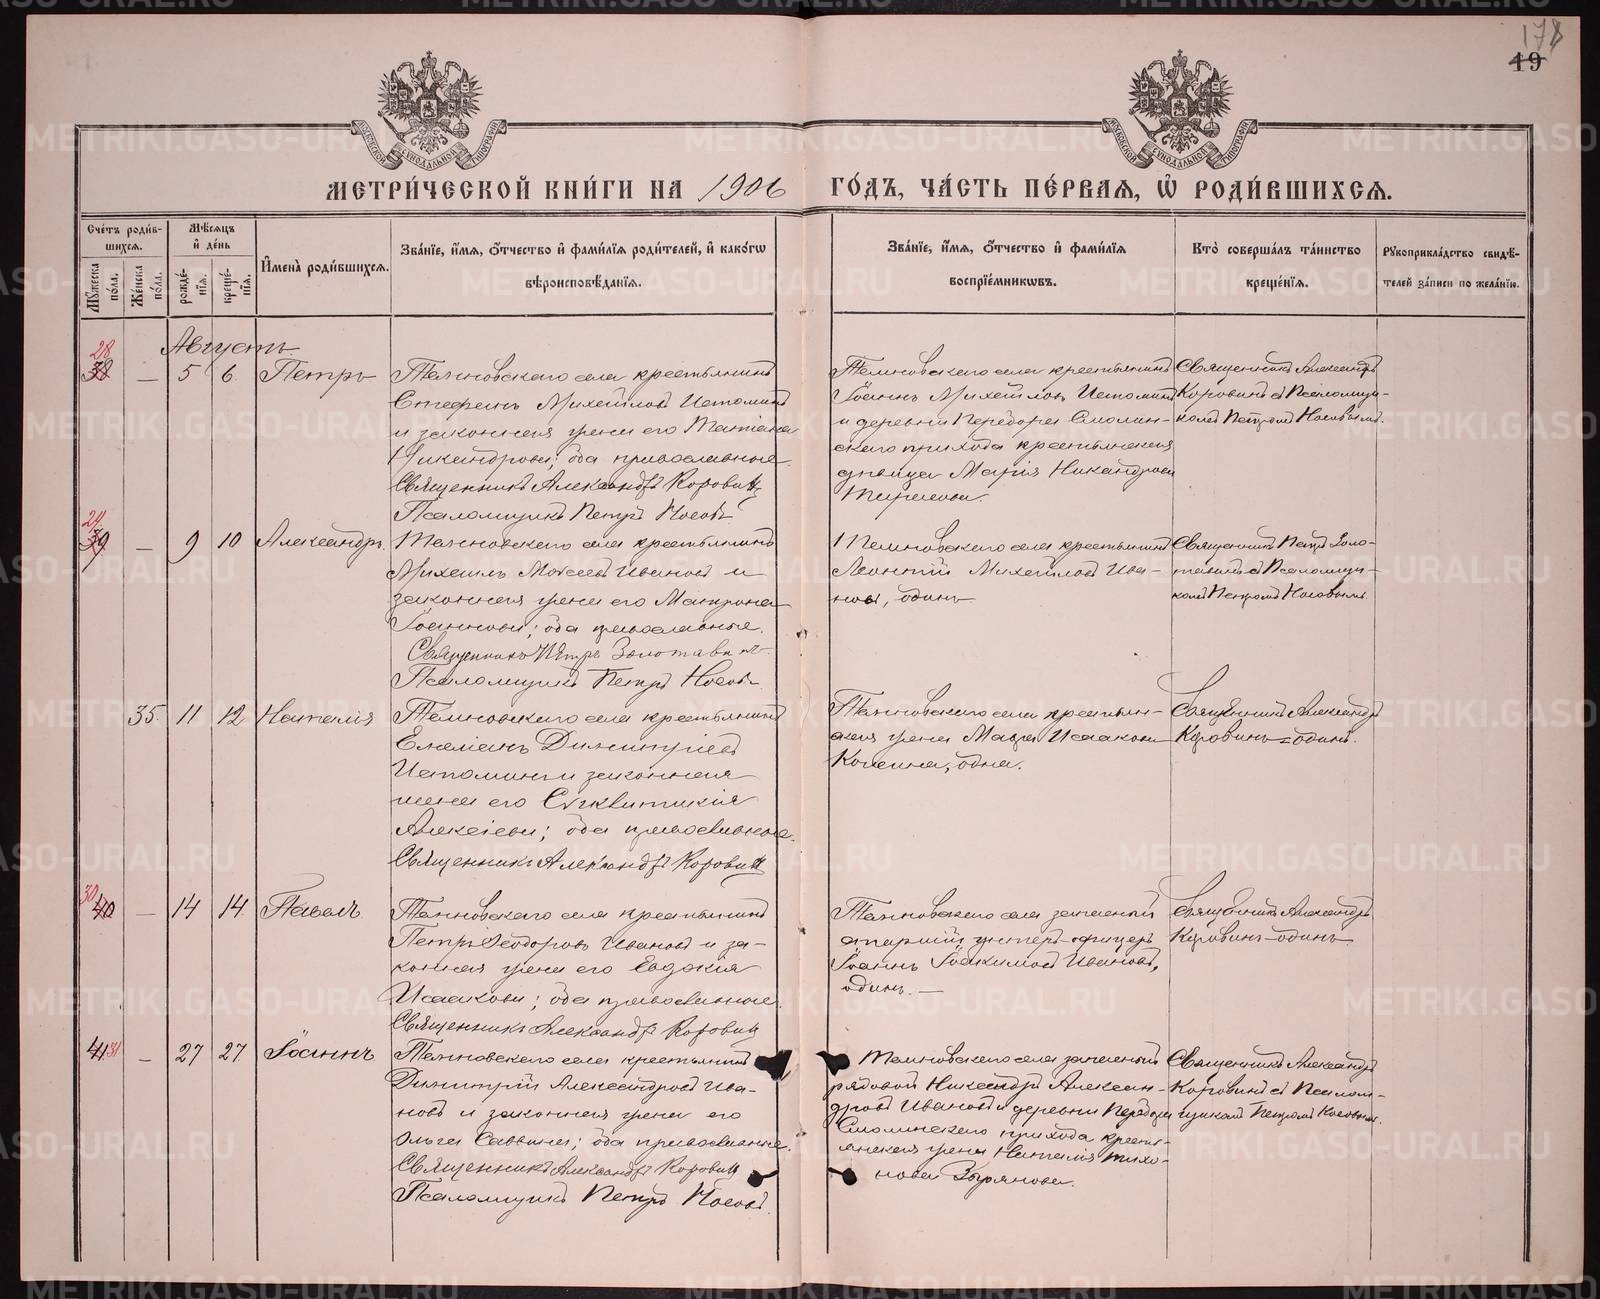 178
19
МЕТРИ́ЧЕСКОЙ КНИ́ГИ НА 1906 ГО́ДЪ, ЧА́СТЬ ПЕ́РВАЯ, Ѡ РОДИ́ВШИХСЯ.
Сче́тъ роди́в-
шихся.
Мѣ́сяцъ
и де́нь
Му́жеска
по́ла.
Же́нска
по́ла.
рожде́-
нїя.
креще́-
нїя.
Имена̀ роди́вшихся.
Зва́нїе, и́мя, ѻ́тчество и фами́лїя роди́телей, и како́гѡ
вѣроисповѣ́данїя.
Зва́нїе, и́мя, ѻ́тчество и фами́лїя
воспрїе́мникѡвъ.
Кто̀ соверша́лъ та́инство
креще́нїя.
Рꙋкоприкла́дство свидѣ́-
телей за́писи по жела́нїю.
Августъ
28
38 — 5 6 Петръ
села крестьянинъ
Стефанъ Михайловъ Истоминъ
и законная жена его Татіана
Никандрова; оба православные
Священникъ Александръ Коровинъ
Псаломщикъ Петръ Носовъ
села крестьянинъ
Іоаннъ Михайловъ Истоминъ
и деревни Переборъ Смолин-
скаго прихода крестьянская
дѣвица Марія Никандрова
Священникъ Александръ
Коровинъ съ Псаломщи-
комъ Петромъ Носовымъ.
29
39 — 9 10 Александръ
села крестьянинъ
Михаилъ Моѵсеевъ Ивановъ и
законная жена его Матрона
Іоаннова; оба православные.
Священникъ Петръ
Псаломщикъ Петръ Носовъ
села крестьянинъ
Леонтій Михайловъ Ива-
новъ, одинъ
Священникъ Петръ Золо-
съ Псаломщи-
комъ Петромъ Носовымъ.
35. 11 12 Наталія
села крестьянинъ
Емеліанъ Димитріевъ
Истоминъ и законная
жена его Сигклитикія
Алексіева; оба православные.
Священникъ Александръ Коровинъ
села крестьян-
ская жена Исаакова
одна.
Священникъ Александръ
Коровинъ-одинъ.
30
40 — 14 14 Павелъ
села крестьянинъ
Петръ Ѳеодоровъ Ивановъ и за-
конная жена его Евдокія
Исаакова; оба православные.
Священникъ Александръ Коровинъ
села запасный
старшій унтеръ-офицеръ
Іоаннъ Іоакимовъ Ивановъ,
одинъ. —
Священникъ Александръ
Коровинъ-одинъ
41 31 — 27 27 Іоаннъ
села крестьянинъ
Димитрій Александровъ Ива-
новъ и законная жена его
Ольга Саввина; оба православные.
Священникъ Александръ Коровинъ
Псаломщикъ Петръ Носовъ.
села запасный
рядовой Никандръ Алексан-
дровъ Ивановъ и деревни Переборъ
Смолинскаго прихода кресть-
янская жена Наталія Тихо-
нова Зырянова.
Священникъ Александръ
Коровинъ съ Псалом-
щикомъ Петромъ Носовымъ.